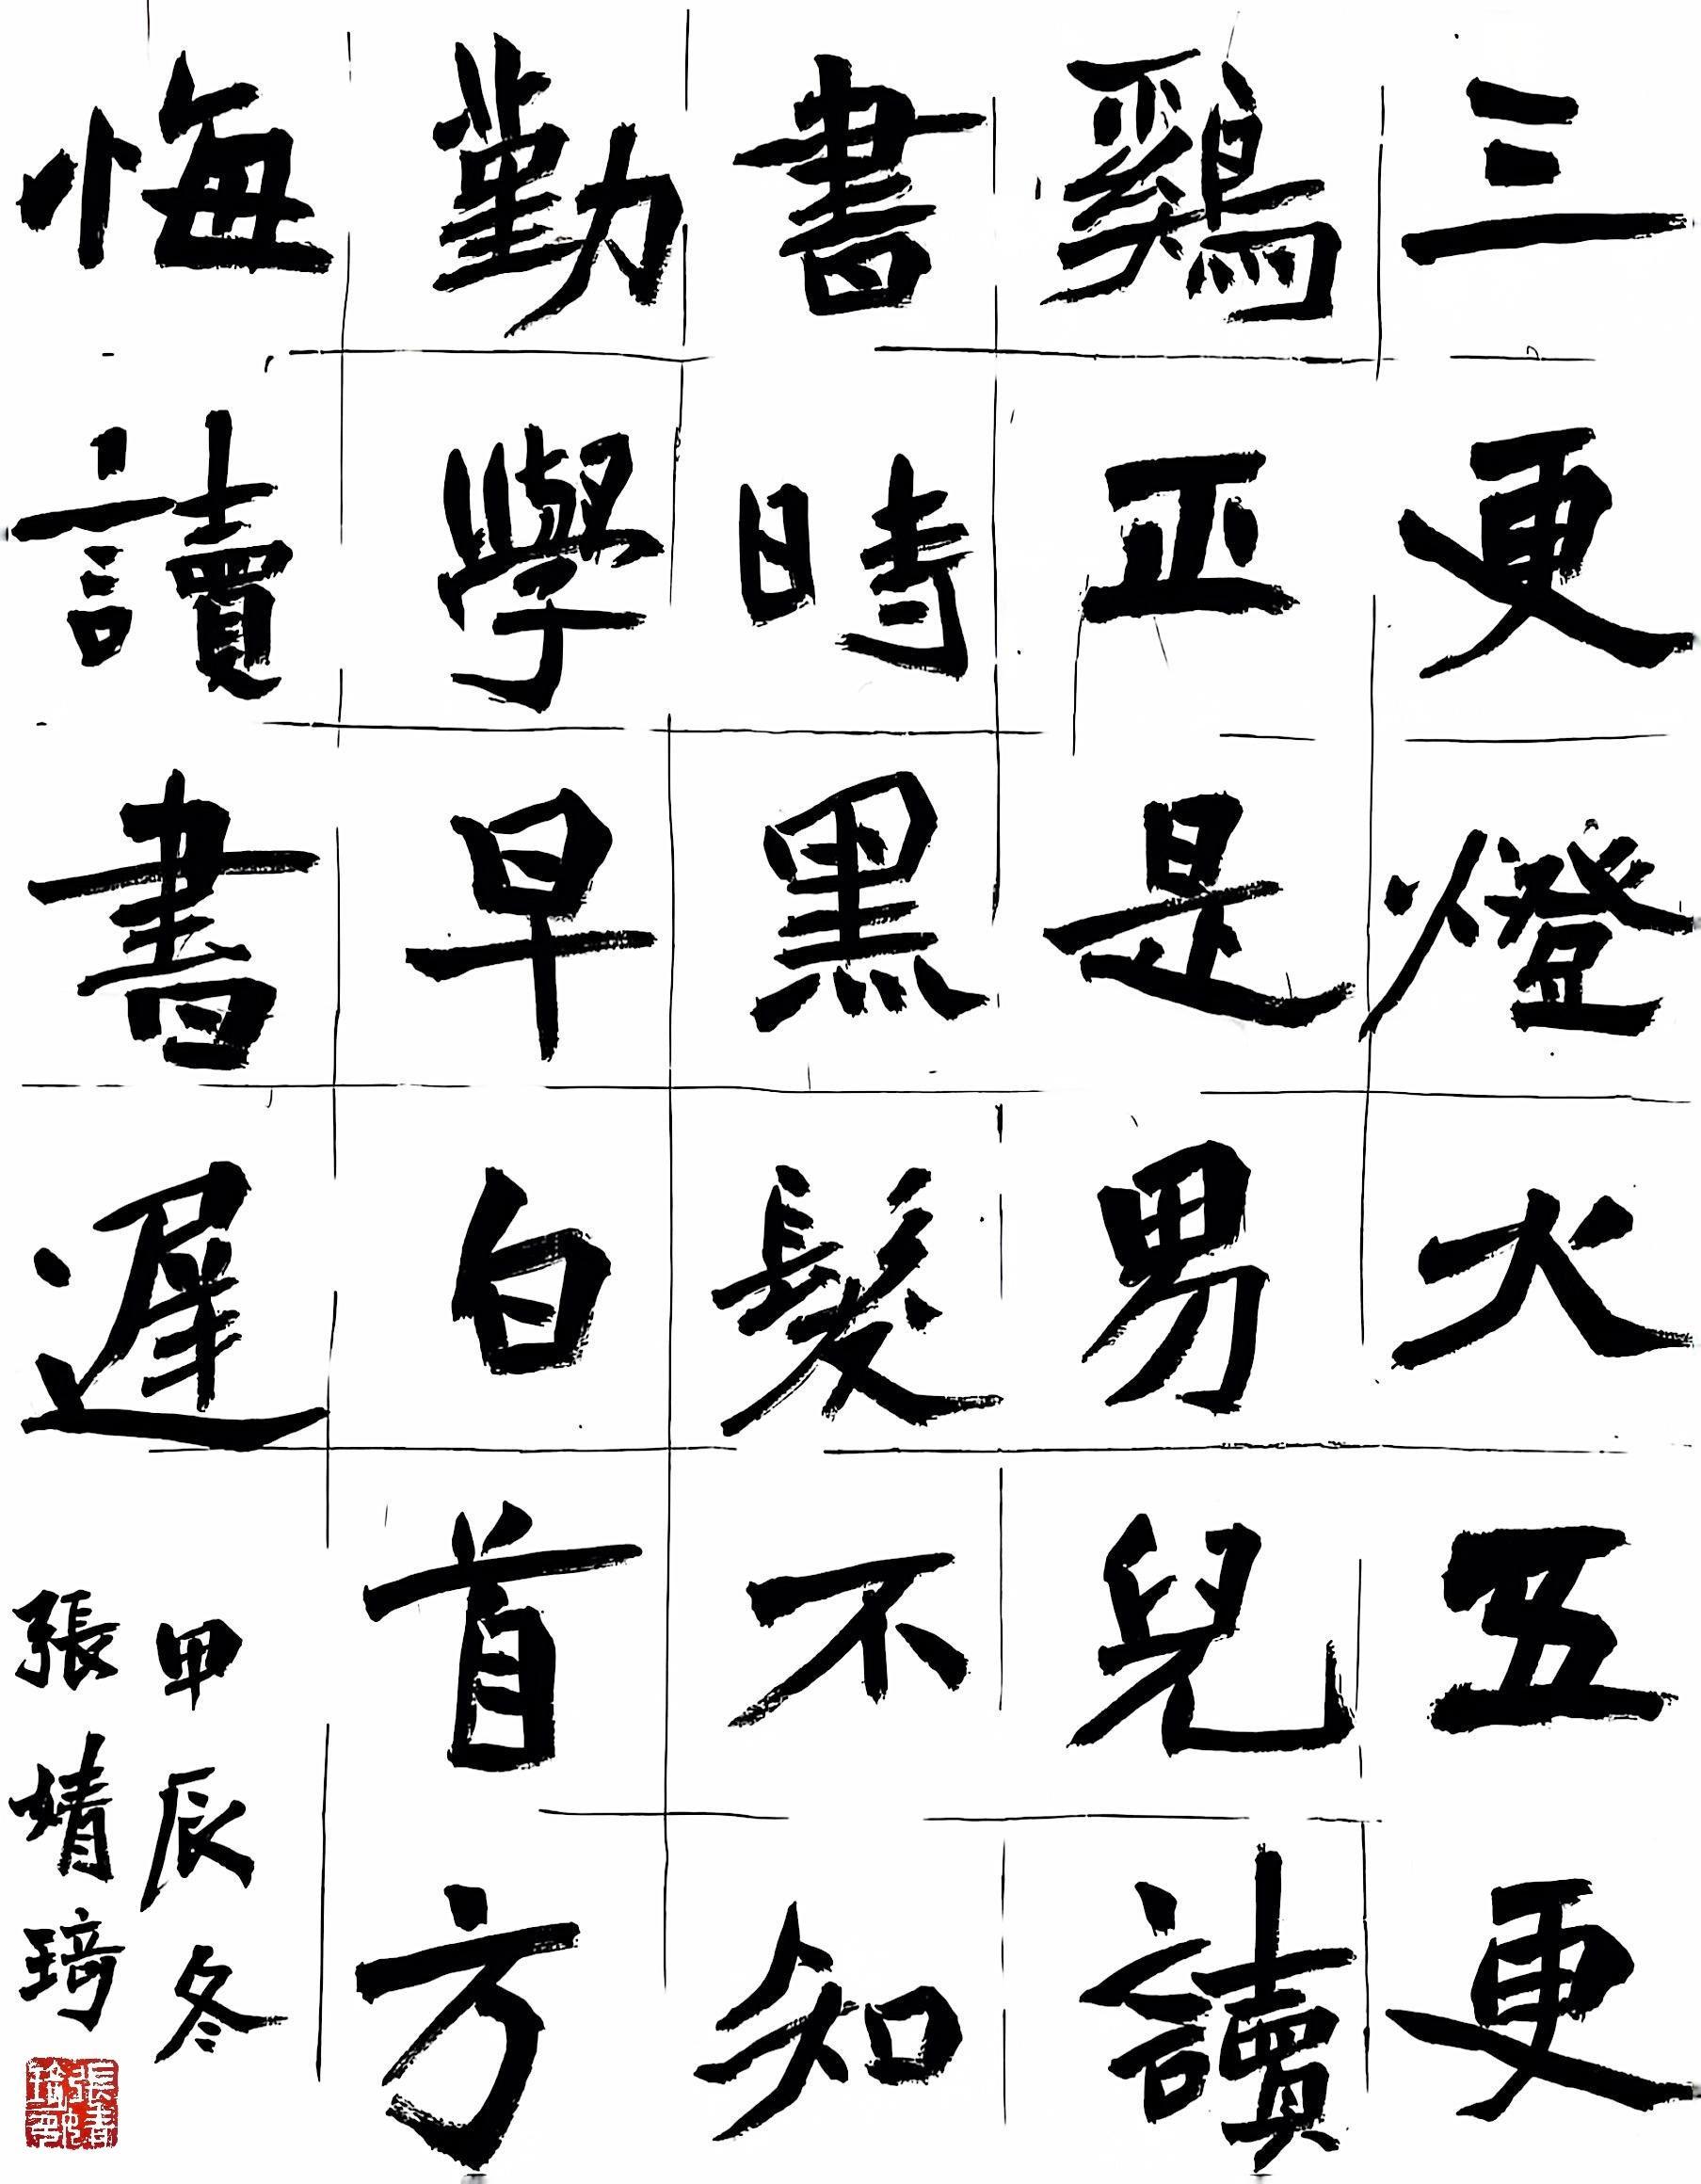 三更燈火五更
鷄正是男兒讀
書時黑髮不知
勤學早白首方
悔讀書遲
甲辰冬
張婧琦